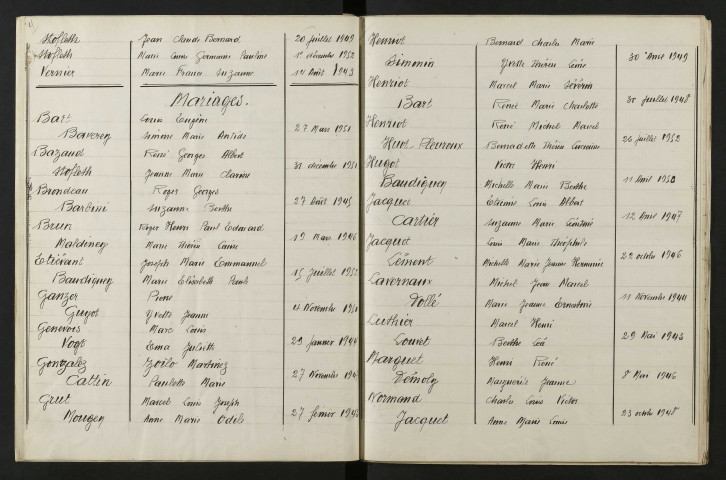 Hofleth Jean Claude Bernard 20 juillet 1949
Hofleth Marie Anne Germaine Pauline 1er décembre 1952
Vernier Marie France Suzanne 14 Août 1943
Mariages.
Bart Louis Eugène
Boverey Simone Marie 27 Mars 1951
Bazaud René Georges Albert
Hofleth Jeanne Marie 31 décembre 1951
Brondeau Roger Georges
Barbini Suzanne Berthe 27 Août 1945
Brun Roger Henri Paul Edouard
Maldiney Marie Thérèse 19 Mars 1946
Etiévant Joseph Marie Emmanuel
Baudiquey Marie Elisabeth Paule 15 juillet 1952
Ganzer Pierre
Guyot Yvette Jeanne 4 Novembre
Genevois Marc Louis
Vogt Ema Juliette 29 Janvier 1944
Gonzalez Zoilo Martinez
Cattin Paulette Marie 27 Novembre
Grut Marcel Louis Joseph
Mougey Anne Marie Odile 27 février
Henriot Bernard Charles Marie
Simonin Yvette Thérèse 30 Août 1949
Henriot Marcel Marie Séverin
Bart Renée Marie Charlotte 31 juillet 1948
Henriot René Michel Marcel
Huot-Fleuroux Bernadette Thérèse 26 juillet 1952
Hugot Victor Henri
Baudiquey Michelle Marie Berthe 11 Avril 1950
Jacquet Etienne Louis Albert
Cartier Suzanne Marie 12 Avril 1947
Jacquet Louis Marie Théophile
Clément Michelle Marie Jeanne Herminie 22 octobre 1946
Lavernaux Michel Jean Marcel
Dollé Marie Jeanne Ernestine 11 Novembre 1944
Luthier Marcel Henri
Louvet Berthe Léa 29 Mai 1943
Marguet Henri René
Démoly Marguerite Jeanne 8 Mai 1946
Normand Charles Louis Victor
Jacquet Anne Marie Louise 23 octobre 1948